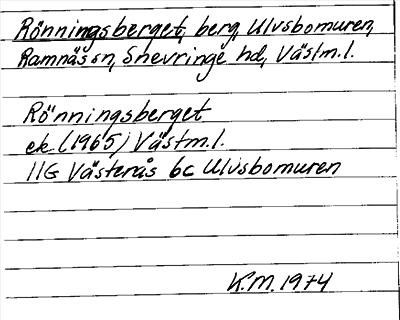 Rönningsberget, berg, Ulvsbomuren,
Ramnäs sn, Snevringe hd, Västm.l.
Rönningsberget
ek (1965) Västm.l.
11G Västerås 6c Ulvsbomuren
K.M. 1974